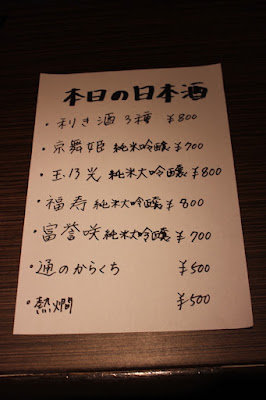 本日の日本酒
・利き酒 3種 ¥800
・京舞姫 純米吟醸 ¥700
・玉乃光 純米大吟醸 ¥800
・福寿 純米大吟醸 ¥800
・富誉咲 純米大吟醸 ¥700
・通のからくち ¥500
・熱燗 ¥500